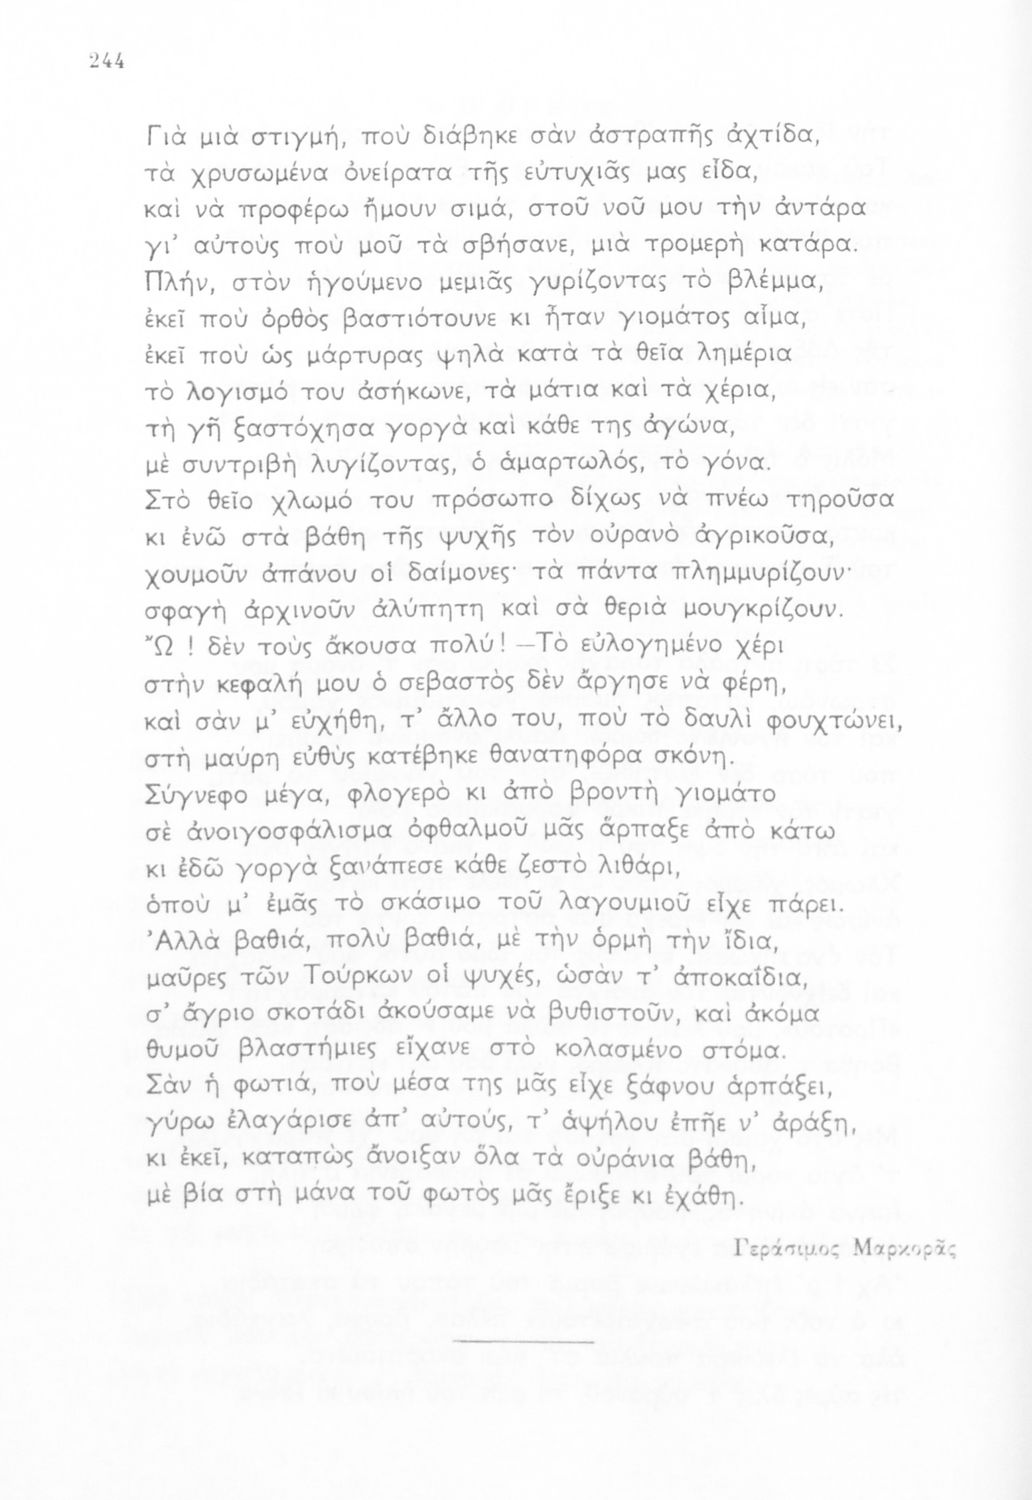 244
Γιὰ μιὰ στιγμή, ποὺ διάβηκε σὰν ἀστραπῆς ἀχτίδα,
τὰ χρυσωμένα ὀνείρατα τῆς εὐτυχιᾶς μας εἶδα,
καὶ νὰ προφέρω ἤμουν σιμά, στοῦ νοῦ μου τὴν ἀντάρα
γι’ αὐτοὺς ποὺ μοῦ τὰ σβήσανε, μιὰ τρομερὴ κατάρα.
Πλήν, στὸν ἡγούμενο μεμιᾶς γυρίζοντας τὸ βλέμμα,
ἐκεῖ ποὺ ὀρθὸς βαστιότουνε κι ἦταν γιομάτος αἷμα,
ἐκεῖ ποὺ ὡς μάρτυρας ψηλὰ κατὰ τὰ θεῖα λημέρια
τὸ λογισμό του ἀσήκωνε, τὰ μάτια καὶ τὰ χέρια,
τὴ γῆ ξαστόχησα γοργὰ καὶ κάθε της ἀγώνα,
μὲ συντριβὴ λυγίζοντας, ὁ ἁμαρτωλός, τὸ γόνα.
Στὸ θεῖο χλωμό του πρόσωπο δίχως νὰ πνέω τηροῦσα
κι ἐνῶ στὰ βάθη τῆς ψυχῆς τὸν οὐρανὸ ἀγρικοῦσα,
χουμοῦν ἀπάνου οἱ δαίμονες· τὰ πάντα πλημμυρίζουν·
σφαγὴ ἀρχινοῦν ἀλύπητη καὶ σὰ θεριὰ μουγκρίζουν.
Ὤ ! δὲν τοὺς ἄκουσα πολύ! —Τὸ εὐλογημένο χέρι
στὴν κεφαλή μου ὁ σεβαστὸς δὲν ἄργησε νὰ φέρη,
καὶ σὰν μ’ εὐχήθη, τ’ ἄλλο του, ποὺ τὸ δαυλὶ φουχτώνει,
στὴ μαύρη εὐθὺς κατέβηκε θανατηφόρα σκόνη.
Σύγνεφο μέγα, φλογερὸ κι ἀπὸ βροντὴ γιομάτο
σὲ ἀνοιγοσφάλισμα ὀφθαλμοῦ μᾶς ἅρπαξε ἀπὸ κάτω
κι ἐδῶ γοργὰ ξανάπεσε κάθε ζεστὸ λιθάρι,
ὁποὺ μ’ ἐμᾶς τὸ σκάσιμο τοῦ λαγουμιοῦ εἶχε πάρει.
Ἀλλὰ βαθιά, πολὺ βαθιά, μὲ τὴν ὁρμὴ τὴν ἴδια,
μαῦρες τῶν Τούρκων οἱ ψυχές, ὡσὰν τ’ ἀποκαΐδια,
σ’ ἄγριο σκοτάδι ἀκούσαμε νὰ βυθιστοῦν, καὶ ἀκόμα
θυμοῦ βλαστήμιες εἴχανε στὸ κολασμένο στόμα.
Σὰν ἡ φωτιά, ποὺ μέσα της μᾶς εἶχε ξάφνου ἁρπάξει,
γύρω ἐλαγάρισε ἀπ’ αὐτούς, τ’ ἁψήλου ἐπῆε ν’ ἀράξη,
κι ἐκεῖ, καταπὼς ἄνοιξαν ὅλα τὰ οὐράνια βάθη,
μὲ βία στὴ μάνα τοῦ φωτὸς μᾶς ἔριξε κι ἐχάθη.
Γεράσιμος Μαρκορᾶς